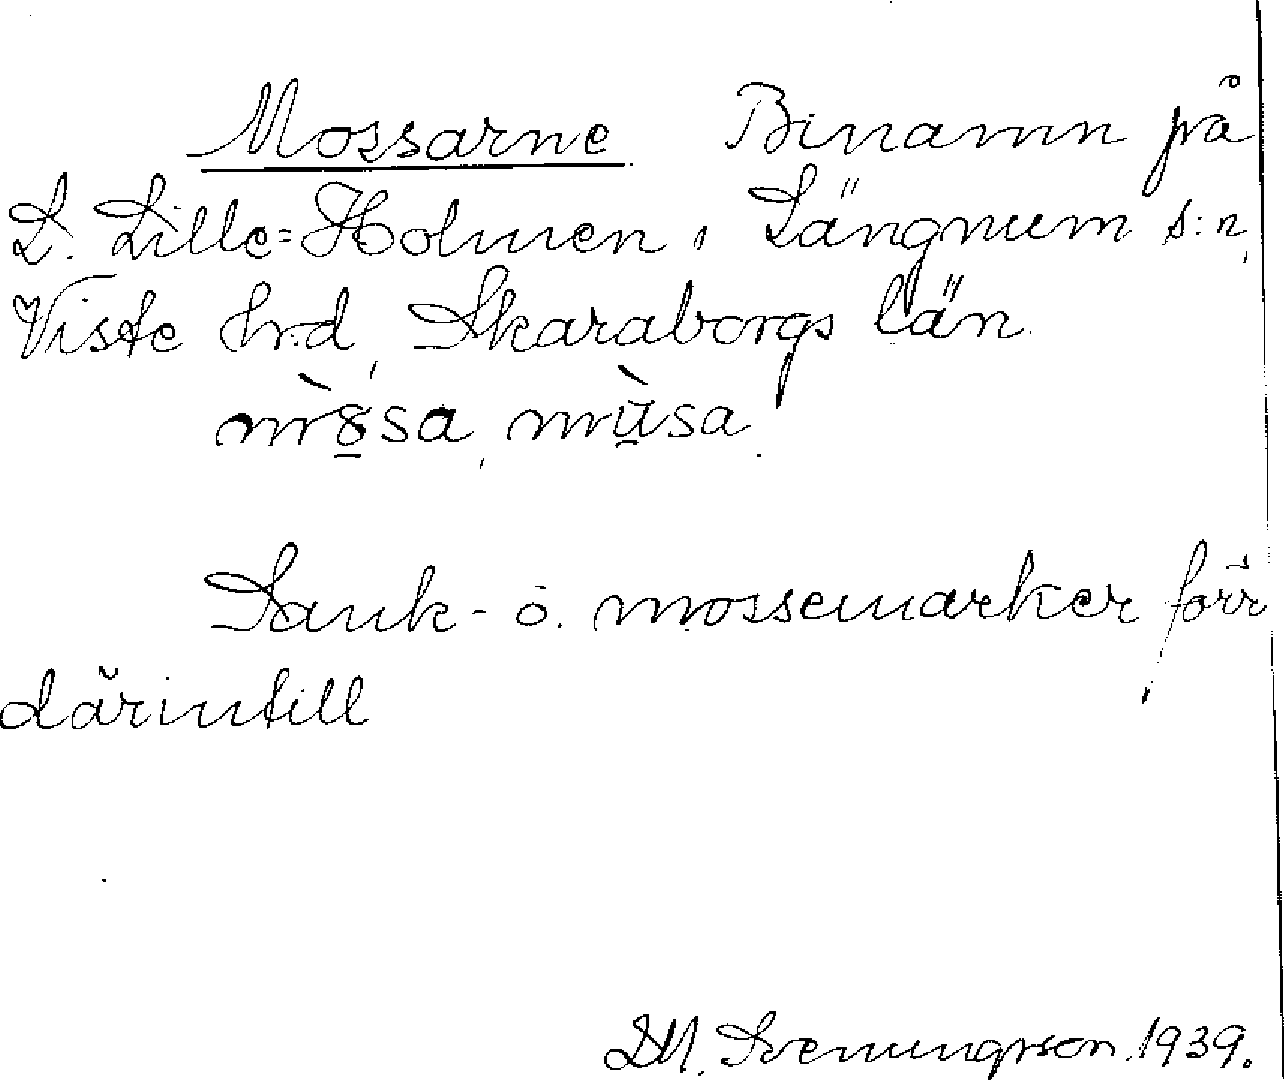 Mossarne Binamn på
L. Lille-Holmen i Längnum s:n,
Viste hrd, Skaraborgs län.
mò̱sa, mùsa.
Sank- o. mossemarker förr
därintill
D.M. Sveningsson. 1939.